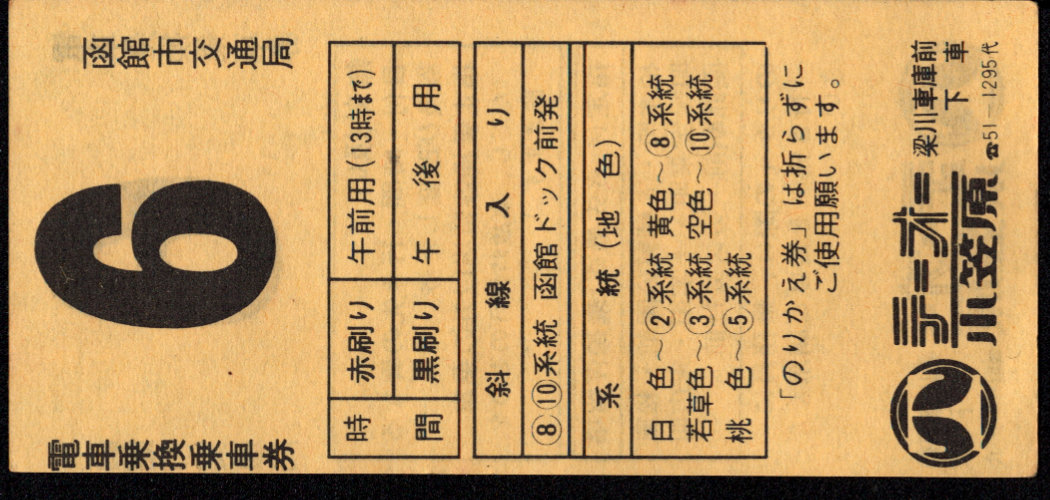 電車乗換乗車券
6
函館市交通局
時間
赤刷り 午前用(13時まで)
黒刷り 午後用
斜線入り
⑧⑩系統 函館ドック前発
系統(地色)
白色~②系統 黄色~⑧系統
若草色~③系統 空色~⑩系統
桃色~⑤系統
「のりかえ券」は折らずに
ご使用願います。
テーオー
小笠原
梁川車庫前
下車
☎51-1295代